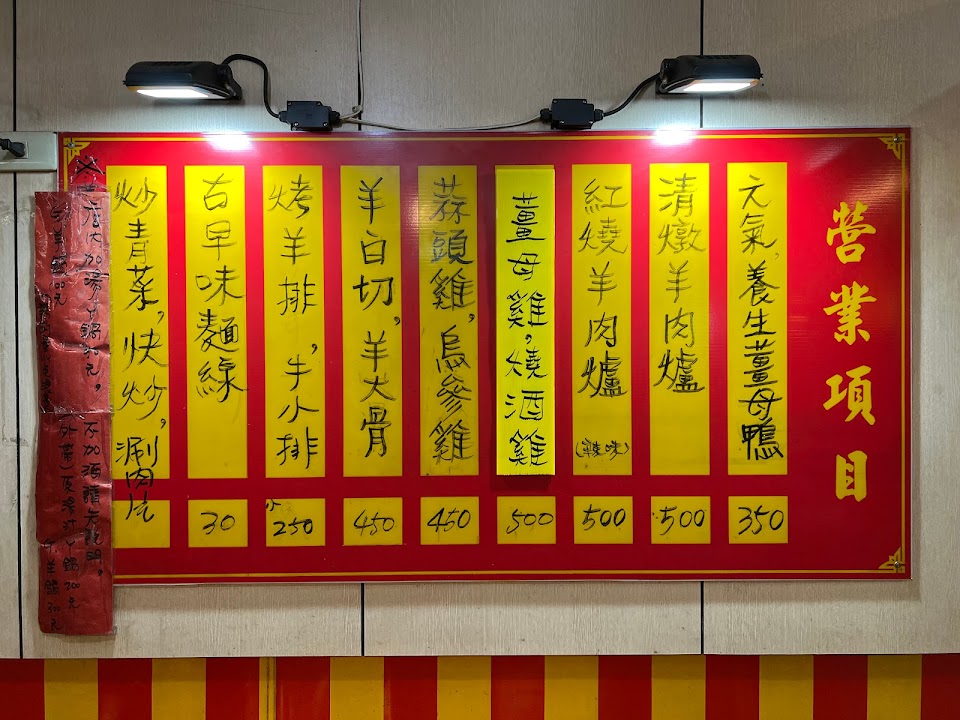 營業項目
元氣,養生薑母鴨
350
清燉羊肉爐
500
紅燒羊肉爐(辣味)
500
薑母雞,燒酒雞
500
蒜頭雞,烏參雞
450
羊白切,羊大骨
450
烤羊排,牛小排
小250
古早味麵線
30
炒青菜,快炒,涮肉片
不加酒請先說明。